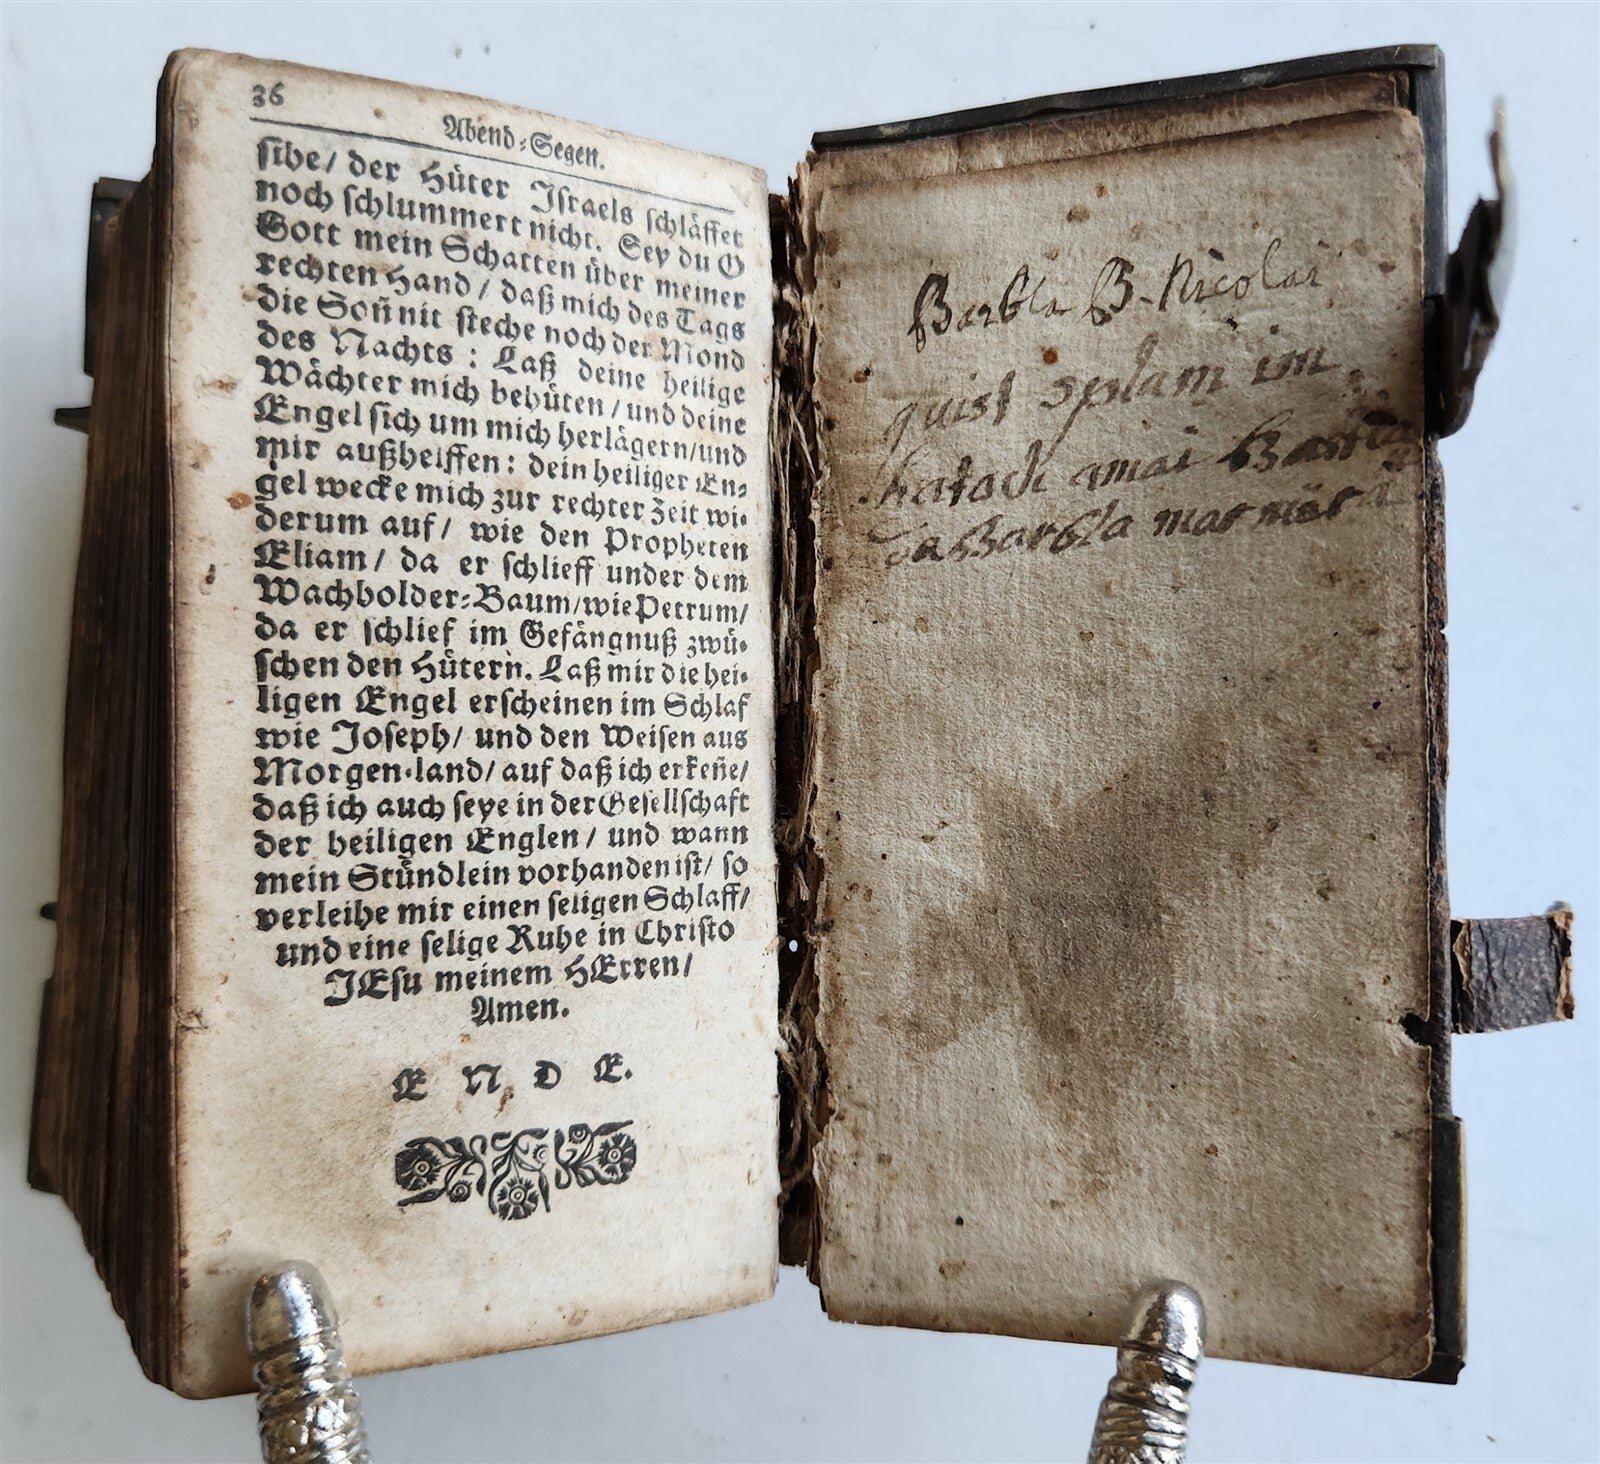 36
Abend-Segen.
sihe/ der Hüter Israels schläffet
noch schlummert nicht. Sey du O
Gott mein Schatten über meiner
rechten Hand/ daß mich des Tags
die Soñ nit steche noch der Mond
des Nachts: Laß deine heilige
Wächter mich behüten/ und deine
Engel sich um mich herlägern/und
mir außhelffen: dein heiliger En-
gel wecke mich zur rechter Zeit wi-
derum auf/ wie den Propheten
Eliam/ da er schlieff under dem
Wachholder-Baum/wie Petrum/
da er schlief im Gefängnuß zwü-
schen den Hütern. Laß mir die hei-
ligen Engel erscheinen im Schlaf
wie Joseph/ und den Weisen aus
Morgen-land/ auf daß ich erkeñe/
daß ich auch seye in der Gesellschaft
der heiligen Englen/ und wann
mein Stündlein vorhanden ist/ so
verleihe mir einen seligen Schlaff/
und eine selige Ruhe in Christo
JEsu meinem HErren/
Amen.
E N D E.
Barbla B. Nicolai
quist splam im
amai
Barbla